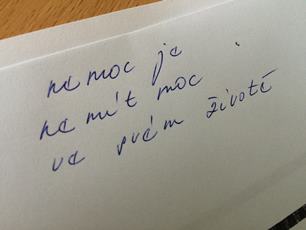 nemoc je
nemít moc
ve svém životě